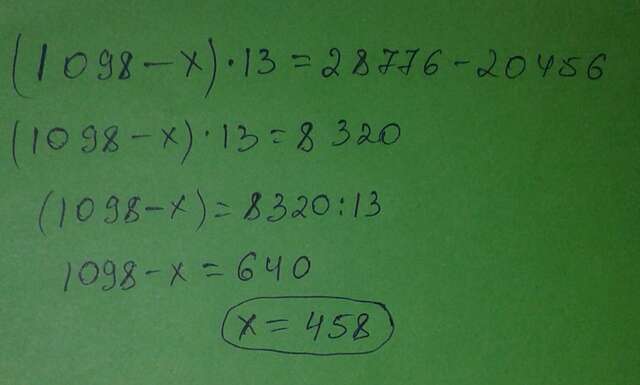 (1098 - x) · 13 = 28776 - 20456
(1098 - x) · 13 = 8320
(1098 - x) = 8320 : 13
1098 - x = 640
x = 458